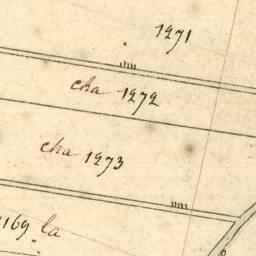 1271
cha 1272
cha 1273
1169 la